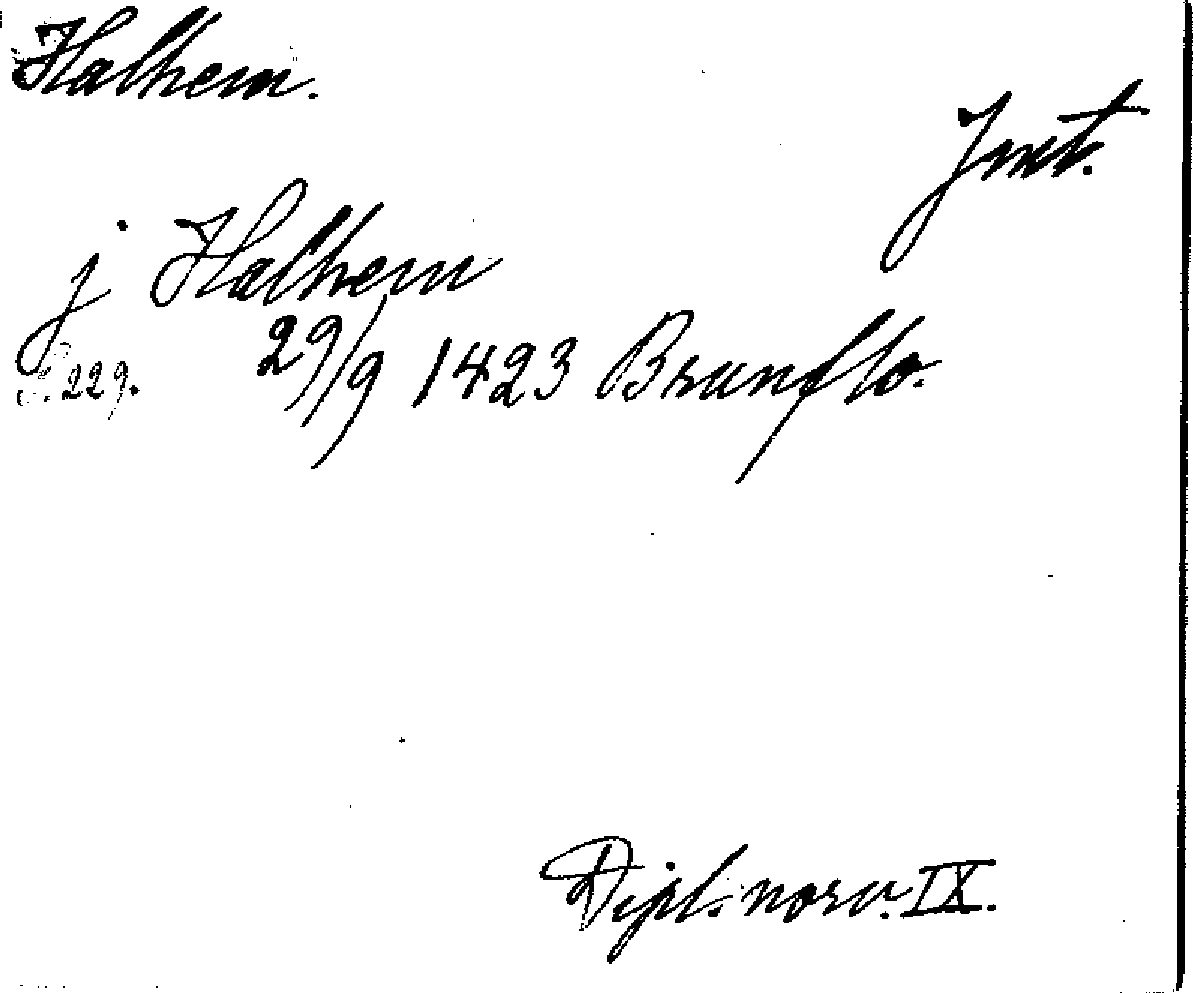 Halhem.
Jmt.
j Halhem
29/9 1423 Brunflo.
S. 229.
Dipl. norv. IX.